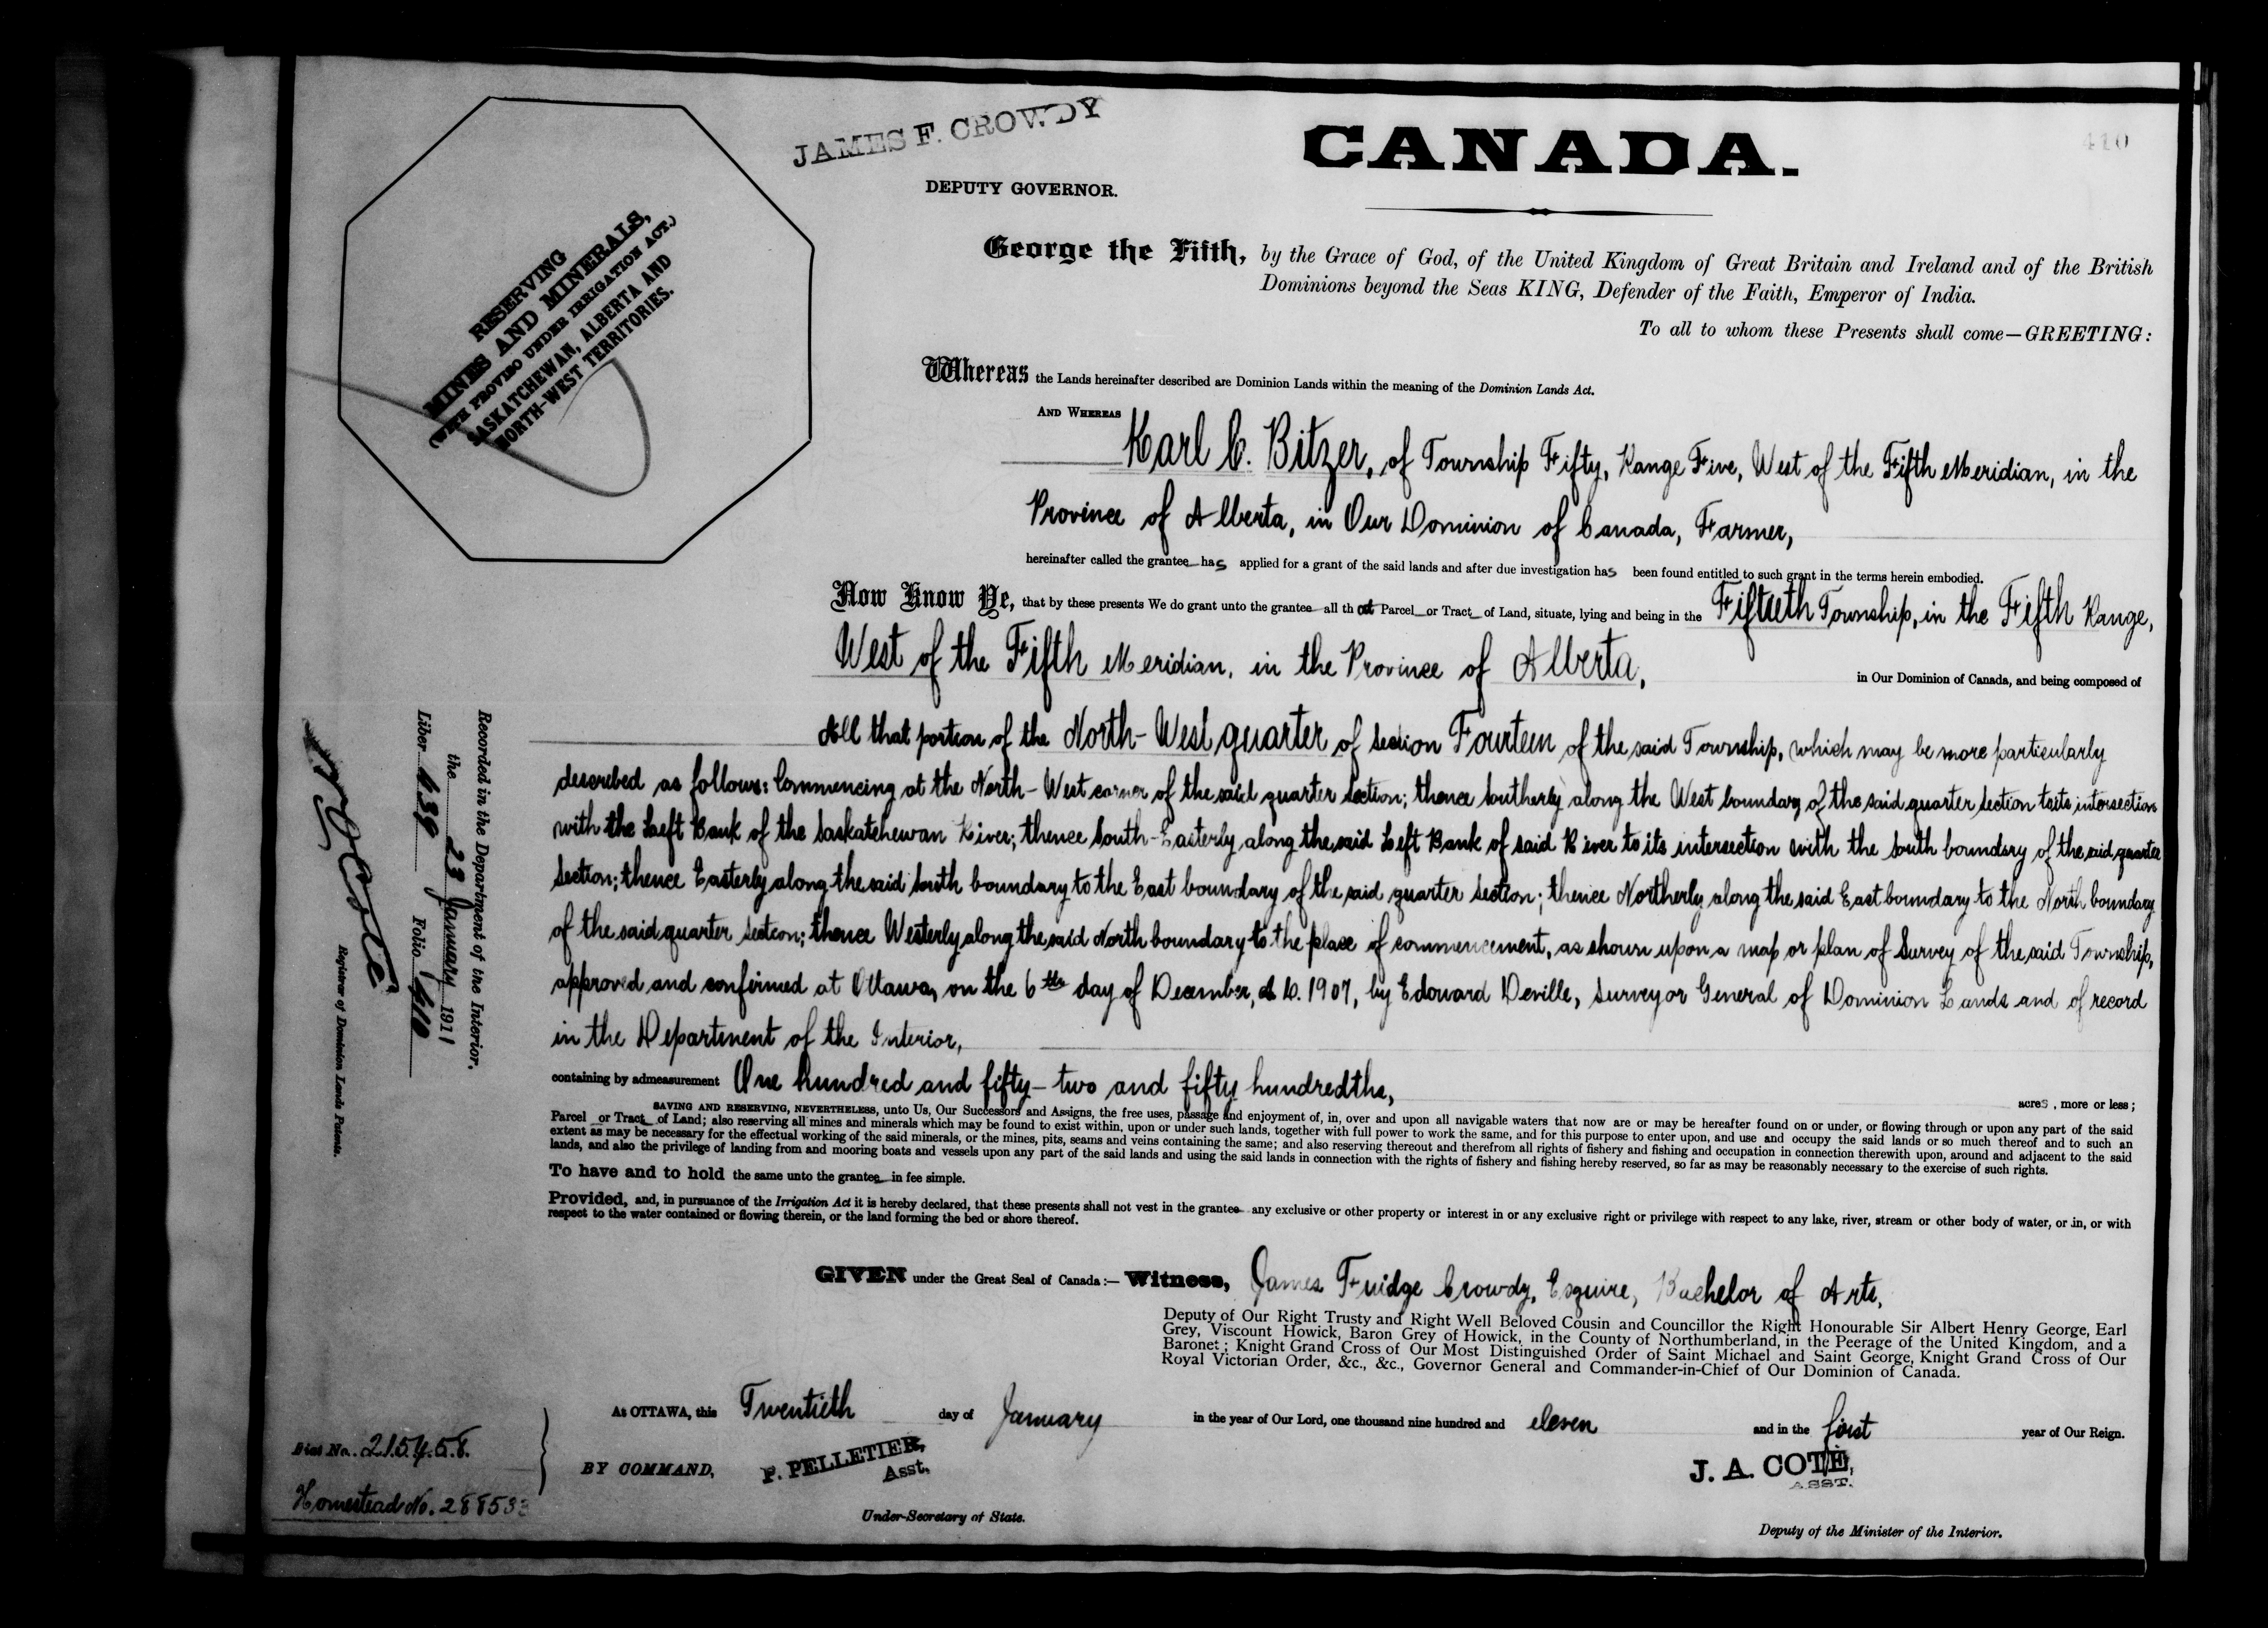 JAMES F. CROWDY
DEPUTY GOVERNOR.
CANADA.
410
RESERVING
MINES AND MINERALS,
(WITH PROVISO UNDER IRRIGATION ACT.)
SASKATCHEWAN, ALBERTA AND
NORTH-WEST TERRITORIES.
George the Fifth, by the Grace of God, of the United Kingdom of Great Britain and Ireland and of the British
Dominions beyond the Seas KING, Defender of the Faith, Emperor of India.
To all to whom these Presents shall come—GREETING:
Whereas the Lands hereinafter described are Dominion Lands within the meaning of the Dominion Lands Act.
AND WHEREAS
Karl C. Bitzer, of Township Fifty, Range Five, West of the Fifth Meridian, in the
Province of Alberta, in Our Dominion of Canada, Farmer,
hereinafter called the grantee has applied for a grant of the said lands and after due investigation has been found entitled to such grant in the terms herein embodied.
Now Know Ye, that by these presents We do grant unto the grantee all that Parcel or Tract of Land, situate, lying and being in the Fiftieth Township, in the Fifth Range,
West of the Fifth Meridian, in the Province of Alberta, in Our Dominion of Canada, and being composed of
All that portion of the North-West quarter of section Fourteen of the said Township, which may be more particularly
described as follows: Commencing at the North-West corner of the said quarter section; thence Southerly along the West boundary of the said quarter section to its intersection
with the Left Bank of the Saskatchewan River; thence South-Easterly along the said Left Bank of said River to its intersection with the South boundary of the said quarter
section; thence Easterly along the said South boundary to the East boundary of the said quarter section; thence Northerly along the said East boundary to the North boundary
of the said quarter section; thence Westerly along the said North boundary to the place of commencement, as shown upon a map or plan of Survey of the said Township,
approved and confirmed at Ottawa, on the 6th day of December, A.D. 1907, by Edouard Deville, Surveyor General of Dominion Lands and of record
in the Department of the Interior,
containing by admeasurement One hundred and fifty-two and fifty hundredths, acres, more or less;
SAVING AND RESERVING, NEVERTHELESS, unto Us, Our Successors and Assigns, the free uses, passage and enjoyment of, in, over and upon all navigable waters that now are or may be hereafter found on or under, or flowing through or upon any part of the said
Parcel or Tract of Land; also reserving all mines and minerals which may be found to exist within, upon or under such lands, together with full power to work the same, and for this purpose to enter upon, and use and occupy the said lands or so much thereof and to such an
extent as may be necessary for the effectual working of the said minerals, or the mines, pits, seams and veins containing the same; and also reserving thereout and therefrom all rights of fishery and fishing and occupation in connection therewith upon, around and adjacent to the said
lands, and also the privilege of landing from and mooring boats and vessels upon any part of the said lands and using the said lands in connection with the rights of fishery and fishing hereby reserved, so far as may be reasonably necessary to the exercise of such rights.
To have and to hold the same unto the grantee in fee simple.
Provided, and, in pursuance of the Irrigation Act it is hereby declared, that these presents shall not vest in the grantee any exclusive or other property or interest in or any exclusive right or privilege with respect to any lake, river, stream or other body of water, or in, or with
respect to the water contained or flowing therein, or the land forming the bed or shore thereof.
GIVEN under the Great Seal of Canada:— Witness, James Fuidge Crowdy, Esquire, Bachelor of Arts,
Deputy of Our Right Trusty and Right Well Beloved Cousin and Councillor the Right Honourable Sir Albert Henry George, Earl
Grey, Viscount Howick, Baron Grey of Howick, in the County of Northumberland, in the Peerage of the United Kingdom, and a
Baronet; Knight Grand Cross of Our Most Distinguished Order of Saint Michael and Saint George, Knight Grand Cross of Our
Royal Victorian Order, &c., &c., Governor General and Commander-in-Chief of Our Dominion of Canada.
At OTTAWA, this Twentieth day of January in the year of Our Lord, one thousand nine hundred and eleven and in the first year of Our Reign.
BY COMMAND,
P. PELLETIER,
Asst.
Under-Secretary of State.
J. A. COTÉ,
ASST.
Deputy of the Minister of the Interior.
Recorded in the Department of the Interior.
the 23 January 1911
Liber 639 Folio 410
J A Coté
Registrar of Dominion Lands Patents.
No. 215458.
Homestead No. 288533